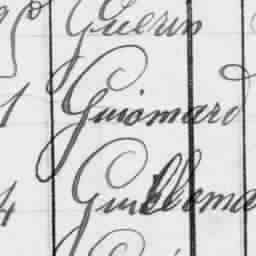 Guerin
1 Guiomard
4 Guillema